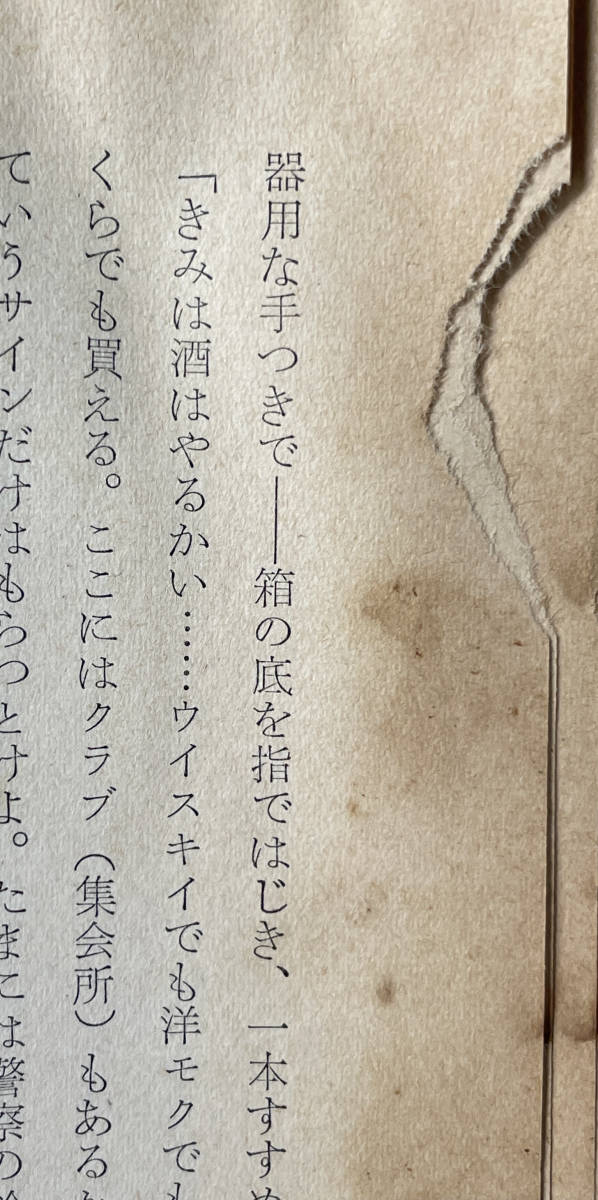 器用な手つきで――箱の底を指ではじき、一本すすめ
「きみは酒はやるかい……ウイスキイでも洋モクでも
くらでも買える。ここにはクラブ（集会所）もあるか
ていうサインだけはもらつとけよ。たまには警察の